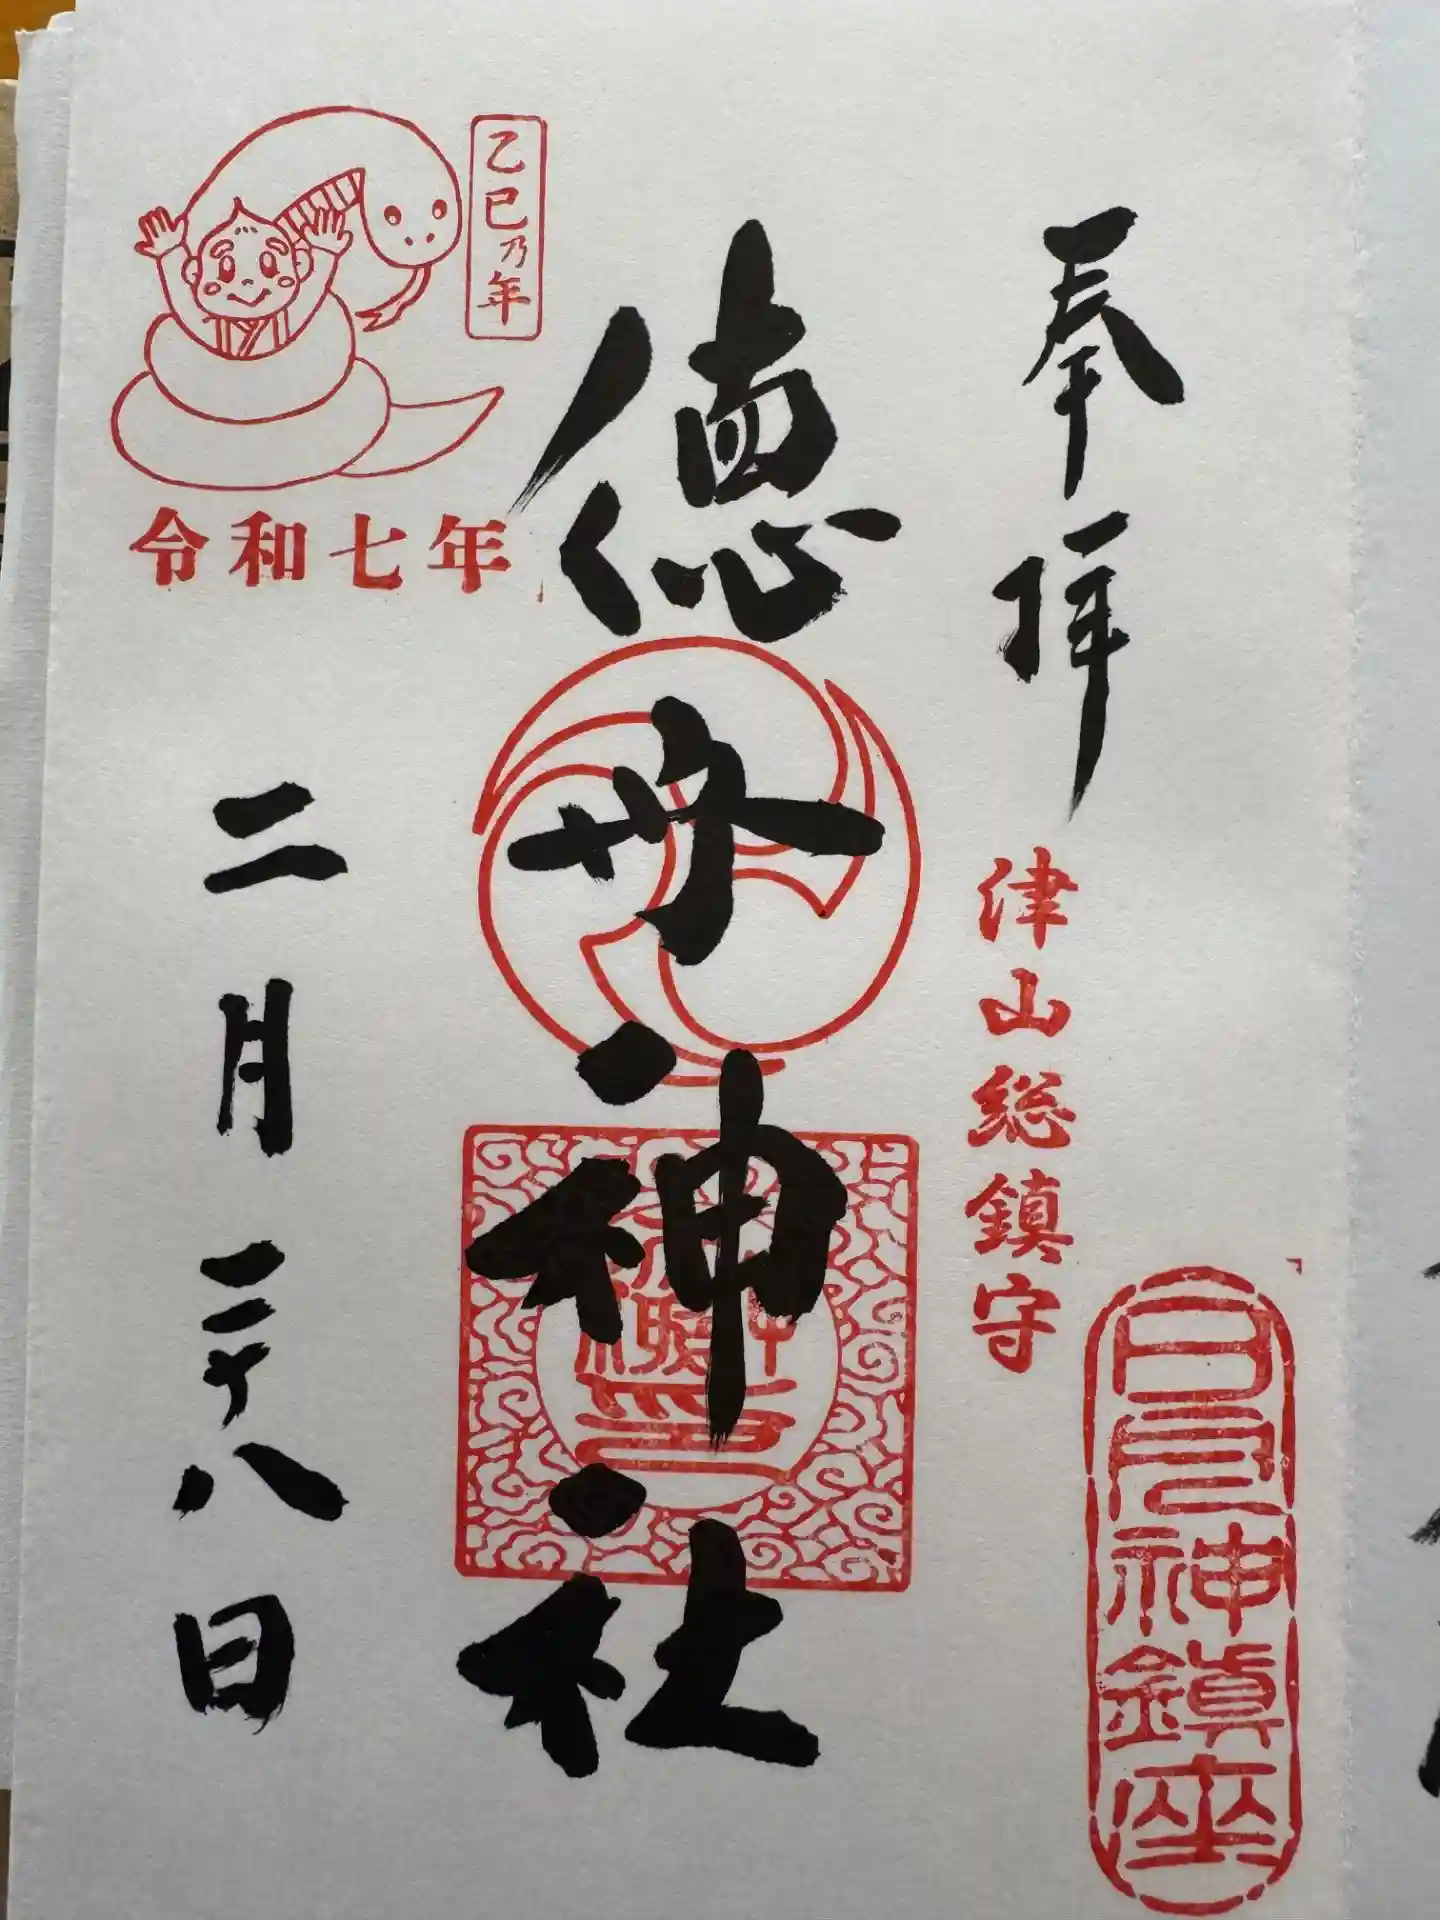 奉拝
津山総鎮守
日 神鎮座
徳守神社
乙巳乃年
令和七年
二月二十八日